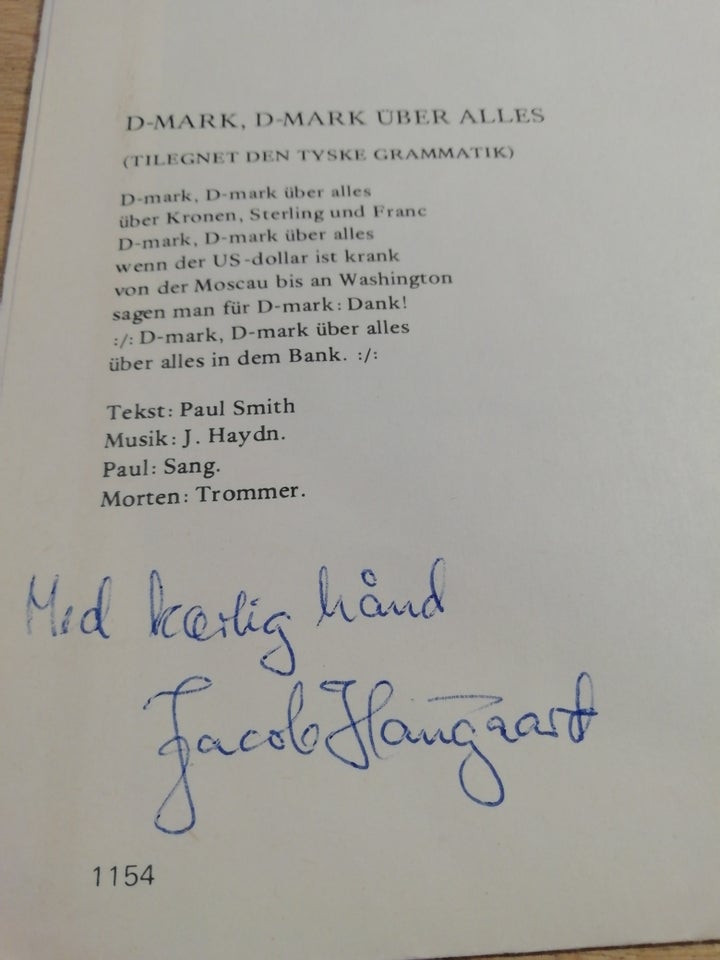 D-MARK, D-MARK ÜBER ALLES
(TILEGNET DEN TYSKE GRAMMATIK)
D-mark, D-mark über alles
über Kronen, Sterling und Franc
D-mark, D-mark über alles
wenn der US-dollar ist krank
von der Moscau bis an Washington
sagen man für D-mark: Dank!
:/: D-mark, D-mark über alles
über alles in dem Bank. :/:
Tekst: Paul Smith
Musik: J. Haydn.
Paul: Sang.
Morten: Trommer.
Med kærlig hånd
Jacob Haugaard
1154